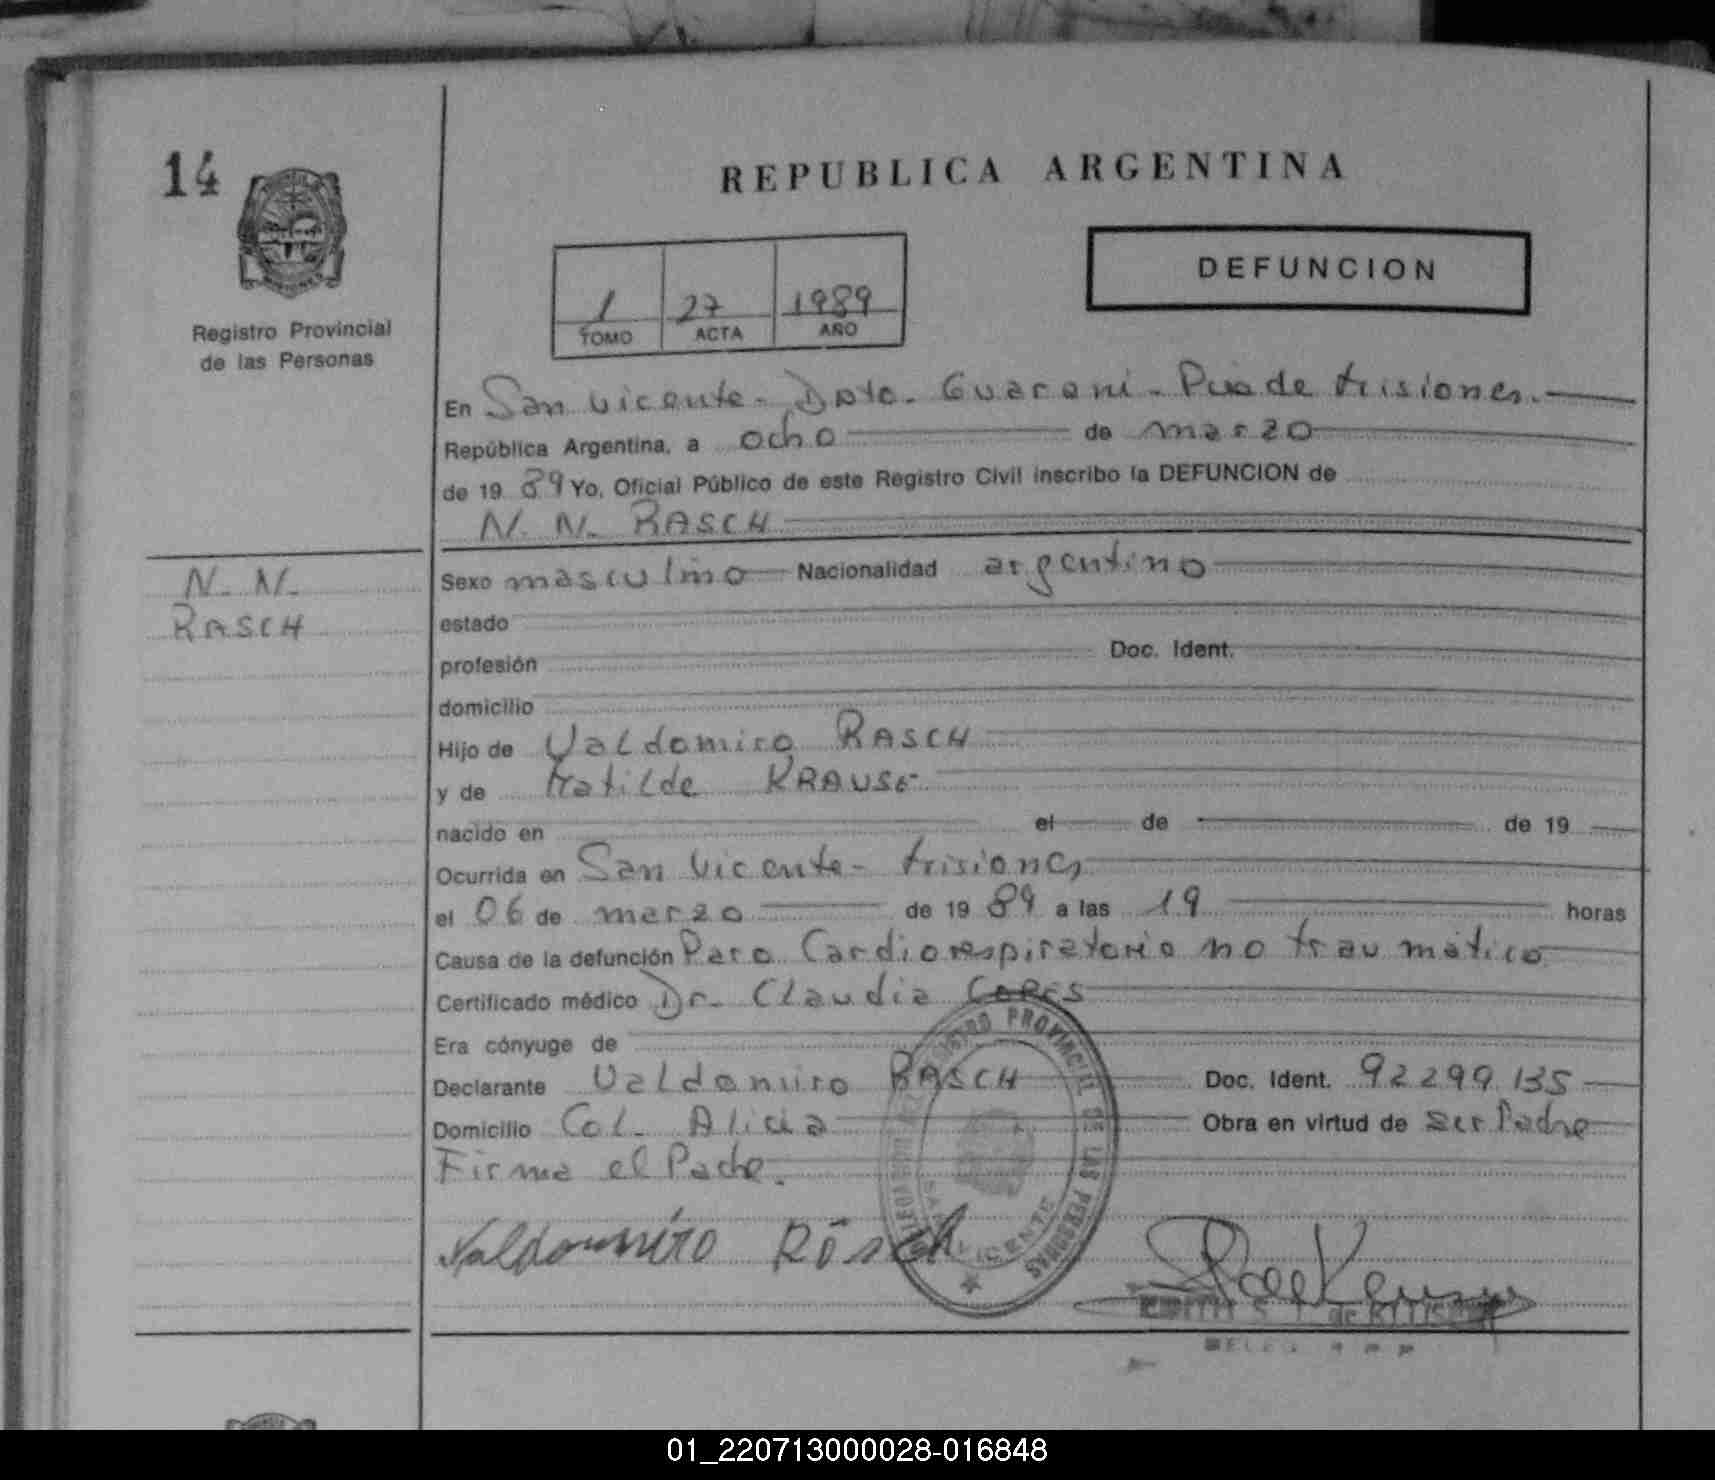 14
REPUBLICA ARGENTINA
DEFUNCION
1 27 1989
TOMO ACTA AÑO
Registro Provincial
de las Personas
En San Vicente - Dpto. Guarani - Pcia de Misiones.
República Argentina, a ocho de marzo
de 19 89 Yo, Oficial Público de este Registro Civil inscribo la DEFUNCION de
N. N. RASCH
N. N.
RASCH
Sexo masculino Nacionalidad argentino
estado
profesión Doc. Ident.
domicilio
Hijo de Valdomiro RASCH
y de Matilde KRAUSE
nacido en el de de 19
Ocurrida en San Vicente - Misiones
el 06 de marzo de 19 89 a las 19 horas
Causa de la defunción Paro Cardiorespiratorio no traumático
Certificado médico Dr. Claudia
Era cónyuge de
Declarante Valdomiro RASCH Doc. Ident. 92299135
Domicilio Col. Alicia Obra en virtud de ser Padre
Firma el Padre.
Valdomiro Räsch
REGISTRO PROVINCIAL DE LAS PERSONAS
SAN VICENTE
EDITH S.
01_220713000028-016848